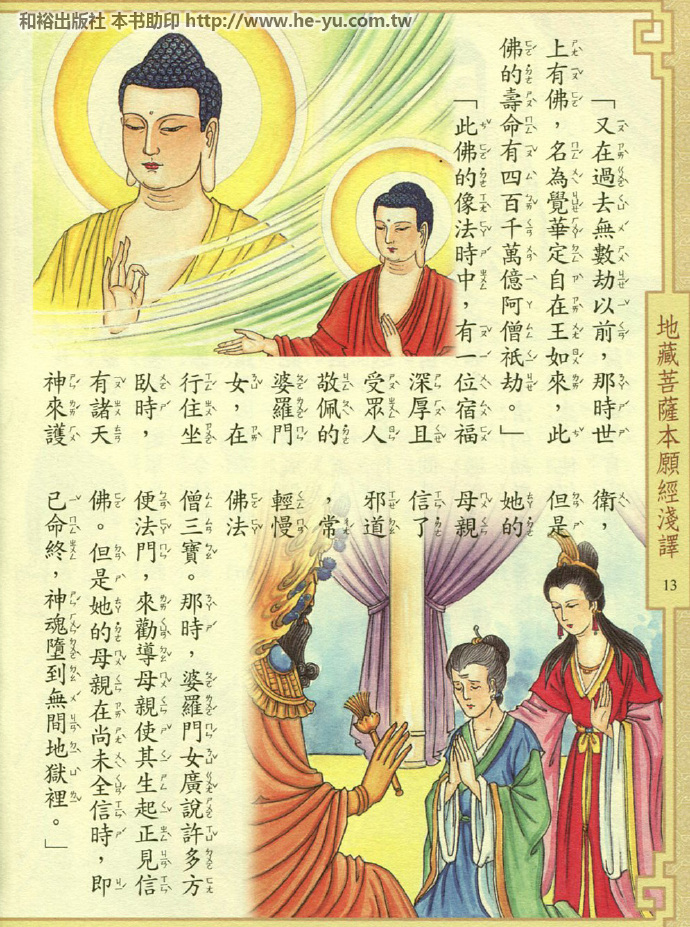 和裕出版社 本书助印 http://www.he-yu.com.tw
「又在過去無數劫以前，那時世
上有佛，名為覺華定自在王如來，此
佛的壽命有四百千萬億阿僧祇劫。」
「此佛的像法時中，有一位宿福
深厚且
受眾人
敬佩的
婆羅門
女，在
行住坐
臥時，
有諸天
神來護
衛，
但是
她的
母親
信了
邪道
，常
輕慢
佛法
僧三寶。那時，婆羅門女廣說許多方
便法門，來勸導母親使其生起正見信
佛。但是她的母親在尚未全信時，即
已命終，神魂墮到無間地獄裡。」
地藏菩薩本願經淺譯
13